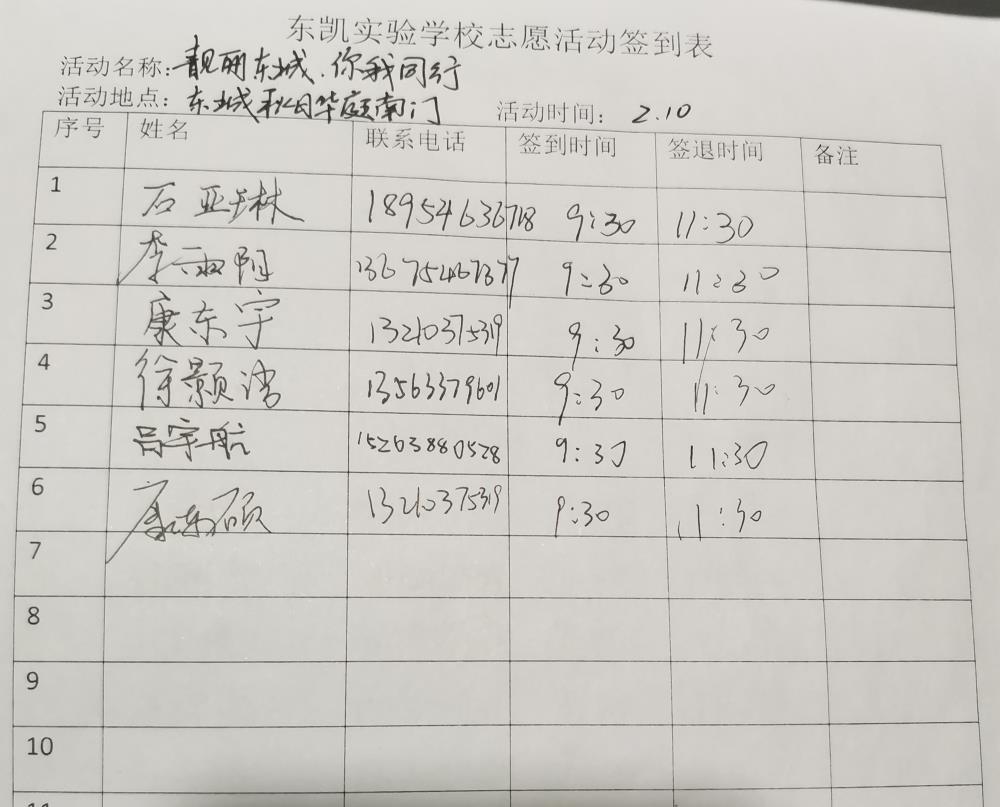 东凯实验学校志愿活动签到表
活动名称：靓丽东城.你我同行
活动地点：东城秋月华庭南门 活动时间：2.10
序号 姓名 联系电话 签到时间 签退时间 备注
1 石亚林 18954636718 9:30 11:30
2 李雨阳 13675467377 9:30 11:30
3 康东宇 13210375319 9:30 11:30
4 徐颢涛 13563379601 9:30 11:30
5 吕宇航 15263880528 9:30 11:30
6 康东硕 13210375319 9:30 11:30
7
8
9
10